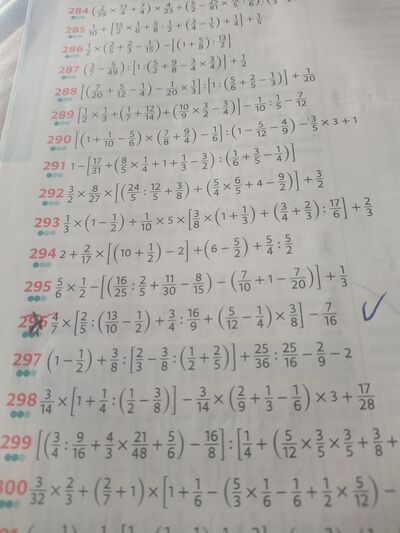 284 (2/39 × 13/4 + 7/4) ×
285 1/10 + [15/2 × 1/6 + 5/8 : 1/2 + (3/4 − 1/5) + 1/4] + 1/5
286 1/2 × (2/5 + 2/3 − 2/15) − [(1 + 5/8) : 13/2]
287 (2/7 − 5/49) : [1 : (5/2 + 9/8 − 3/4 × 3/4)] + 1/2
288 [(7/20 + 5/12 − 1/4) − 1/20 × 1/3] : [1 : (5/6 + 2/5 − 1/3)] + 1/20
289 [1/2 × 1/3 + (1/7 + 12/14) + (10/9 × 3/2 − 3/4)] − 1/10 : 1/5 − 7/12
290 [(1 + 1/10 − 5/6) × (7/8 + 9/4) − 1/6] : (1 − 5/12 − 4/9) − 3/5 × 3 + 1
291 1 − [17/31 + (8/5 × 1/4 + 1 + 1/3 − 3/2) : (1/6 + 3/5 − 1/4)]
292 3/2 × 8/27 × [(24/5 : 12/5 + 3/8) + (5/4 × 6/5 + 4 − 9/2)] + 3/2
293 1/3 × (1 − 1/2) + 1/10 × 5 × [3/8 × (1 + 1/3) + (3/4 + 2/3) : 17/6] + 2/3
294 2 + 2/17 × [(10 + 1/2) − 2] + (6 − 5/2) + 5/4 : 5/2
295 5/6 × 1/2 − [(16/25 : 2/5 + 11/30 − 8/15) − (7/10 + 1 − 7/20)] + 1/3
296 4/7 × [2/5 : (13/10 − 1/2) + 3/4 : 16/9 + (5/12 − 1/4) × 3/8] − 7/16
297 (1 − 1/2) + 3/8 : [2/3 − 3/8 : (1/2 + 2/5)] + 25/36 : 25/16 − 2/9 − 2
298 3/14 × [1 + 1/4 : (1/2 − 3/8)] − 3/14 × (2/9 + 1/3 − 1/6) × 3 + 17/28
299 [(3/4 : 9/16 + 4/3 × 21/48 + 5/6) − 16/8] : [1/4 + (5/12 × 3/5 × 3/5 + 3/8 +
300 3/32 × 2/3 + (2/7 + 1) × [1 + 1/6 − (5/3 × 1/6 − 1/6 + 1/2 × 5/12) −